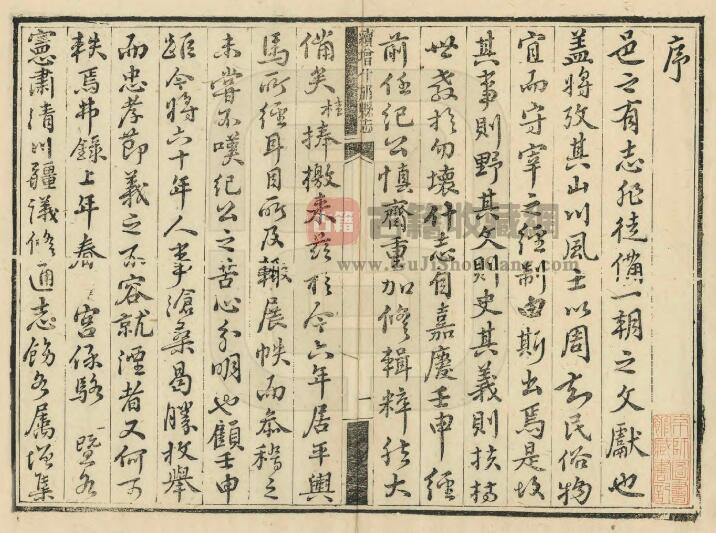 序
邑之有志非徒備一朝之文獻也
蓋將攷其山川風土以周知民俗物
宜而守宰之經制由斯出焉是故
其事則野其文則史其義則扶持
世教於勿壞什志自嘉慶壬申 經
前任紀公慎齋重加修輯粹然大
續增什邡縣志
序
一
備矣桂捧檄來茲於今六年居平輿
馬所經耳目所及輙展帙而參稽之
未嘗不嘆紀公之苦心分明也顧壬申
距今將六十年人事滄桑曷勝枚舉
而忠孝節義之不容就湮者又何可
軼焉弗錄上年春 宮保駱 暨各
憲肅清川疆議修通志飭各屬增集
古籍
古籍收藏網
www.GuJiShouCang.com